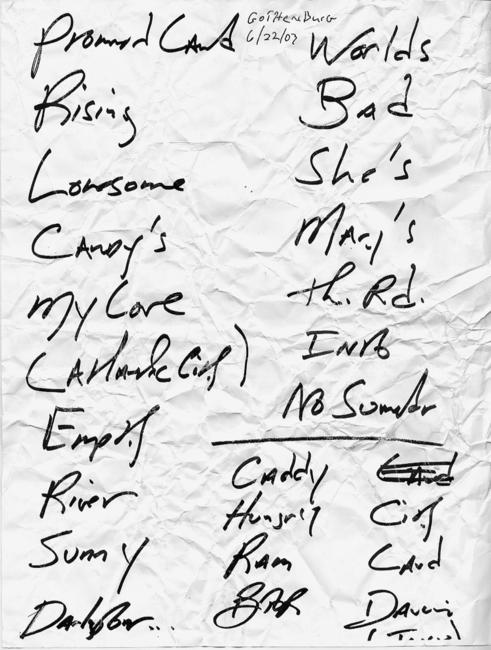 Gothenburg
6/22/03
Promised Land
Rising
Lonesome
Candy's
My Love
(Atlantic City)
Empty
River
Sunny
Darlington...
Worlds
Bad
She's
Mary's
Th. Rd.
Into
No Surrender
Caddy
Hungry
Ram
BTR
Land
City
Land
Dancin